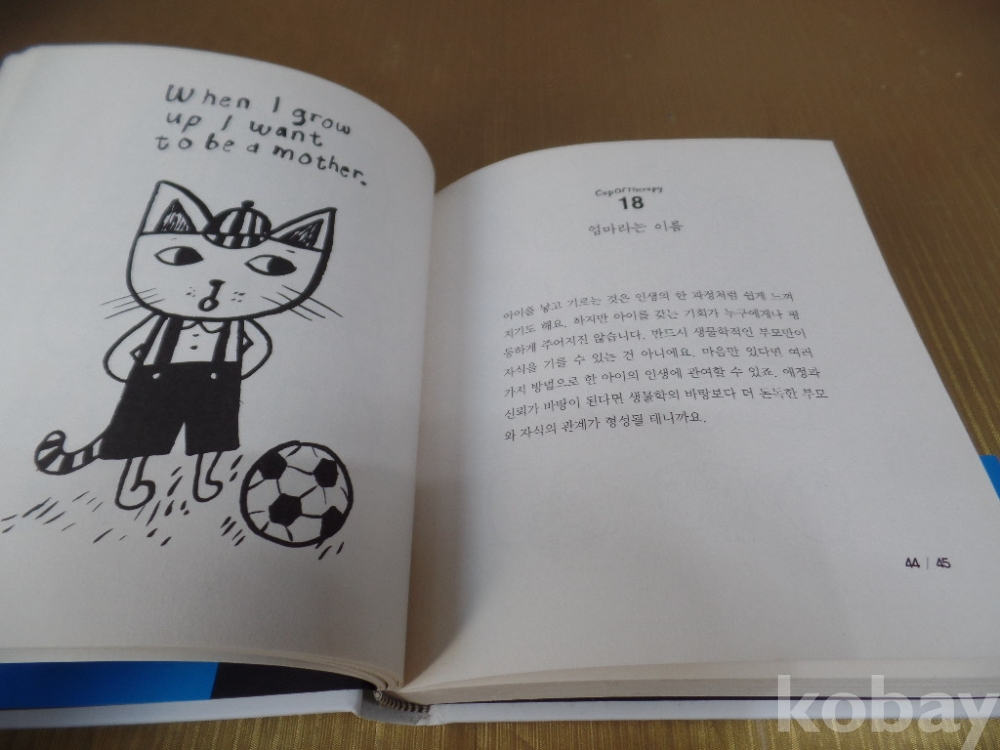 When I grow
up I want
to be a mother.
CupOfTherapy
18
엄마라는 이름
아이를 낳고 기르는 것은 인생의 한 과정처럼 쉽게 느껴
지기도 해요. 하지만 아이를 갖는 기회가 누구에게나 평
등하게 주어지진 않습니다. 반드시 생물학적인 부모만이
자식을 기를 수 있는 건 아니에요. 마음만 있다면 여러
가지 방법으로 한 아이의 인생에 관여할 수 있죠. 애정과
신뢰가 바탕이 된다면 생물학의 바탕보다 더 돈독한 부모
와 자식의 관계가 형성될 테니까요.
44 | 45
kobay